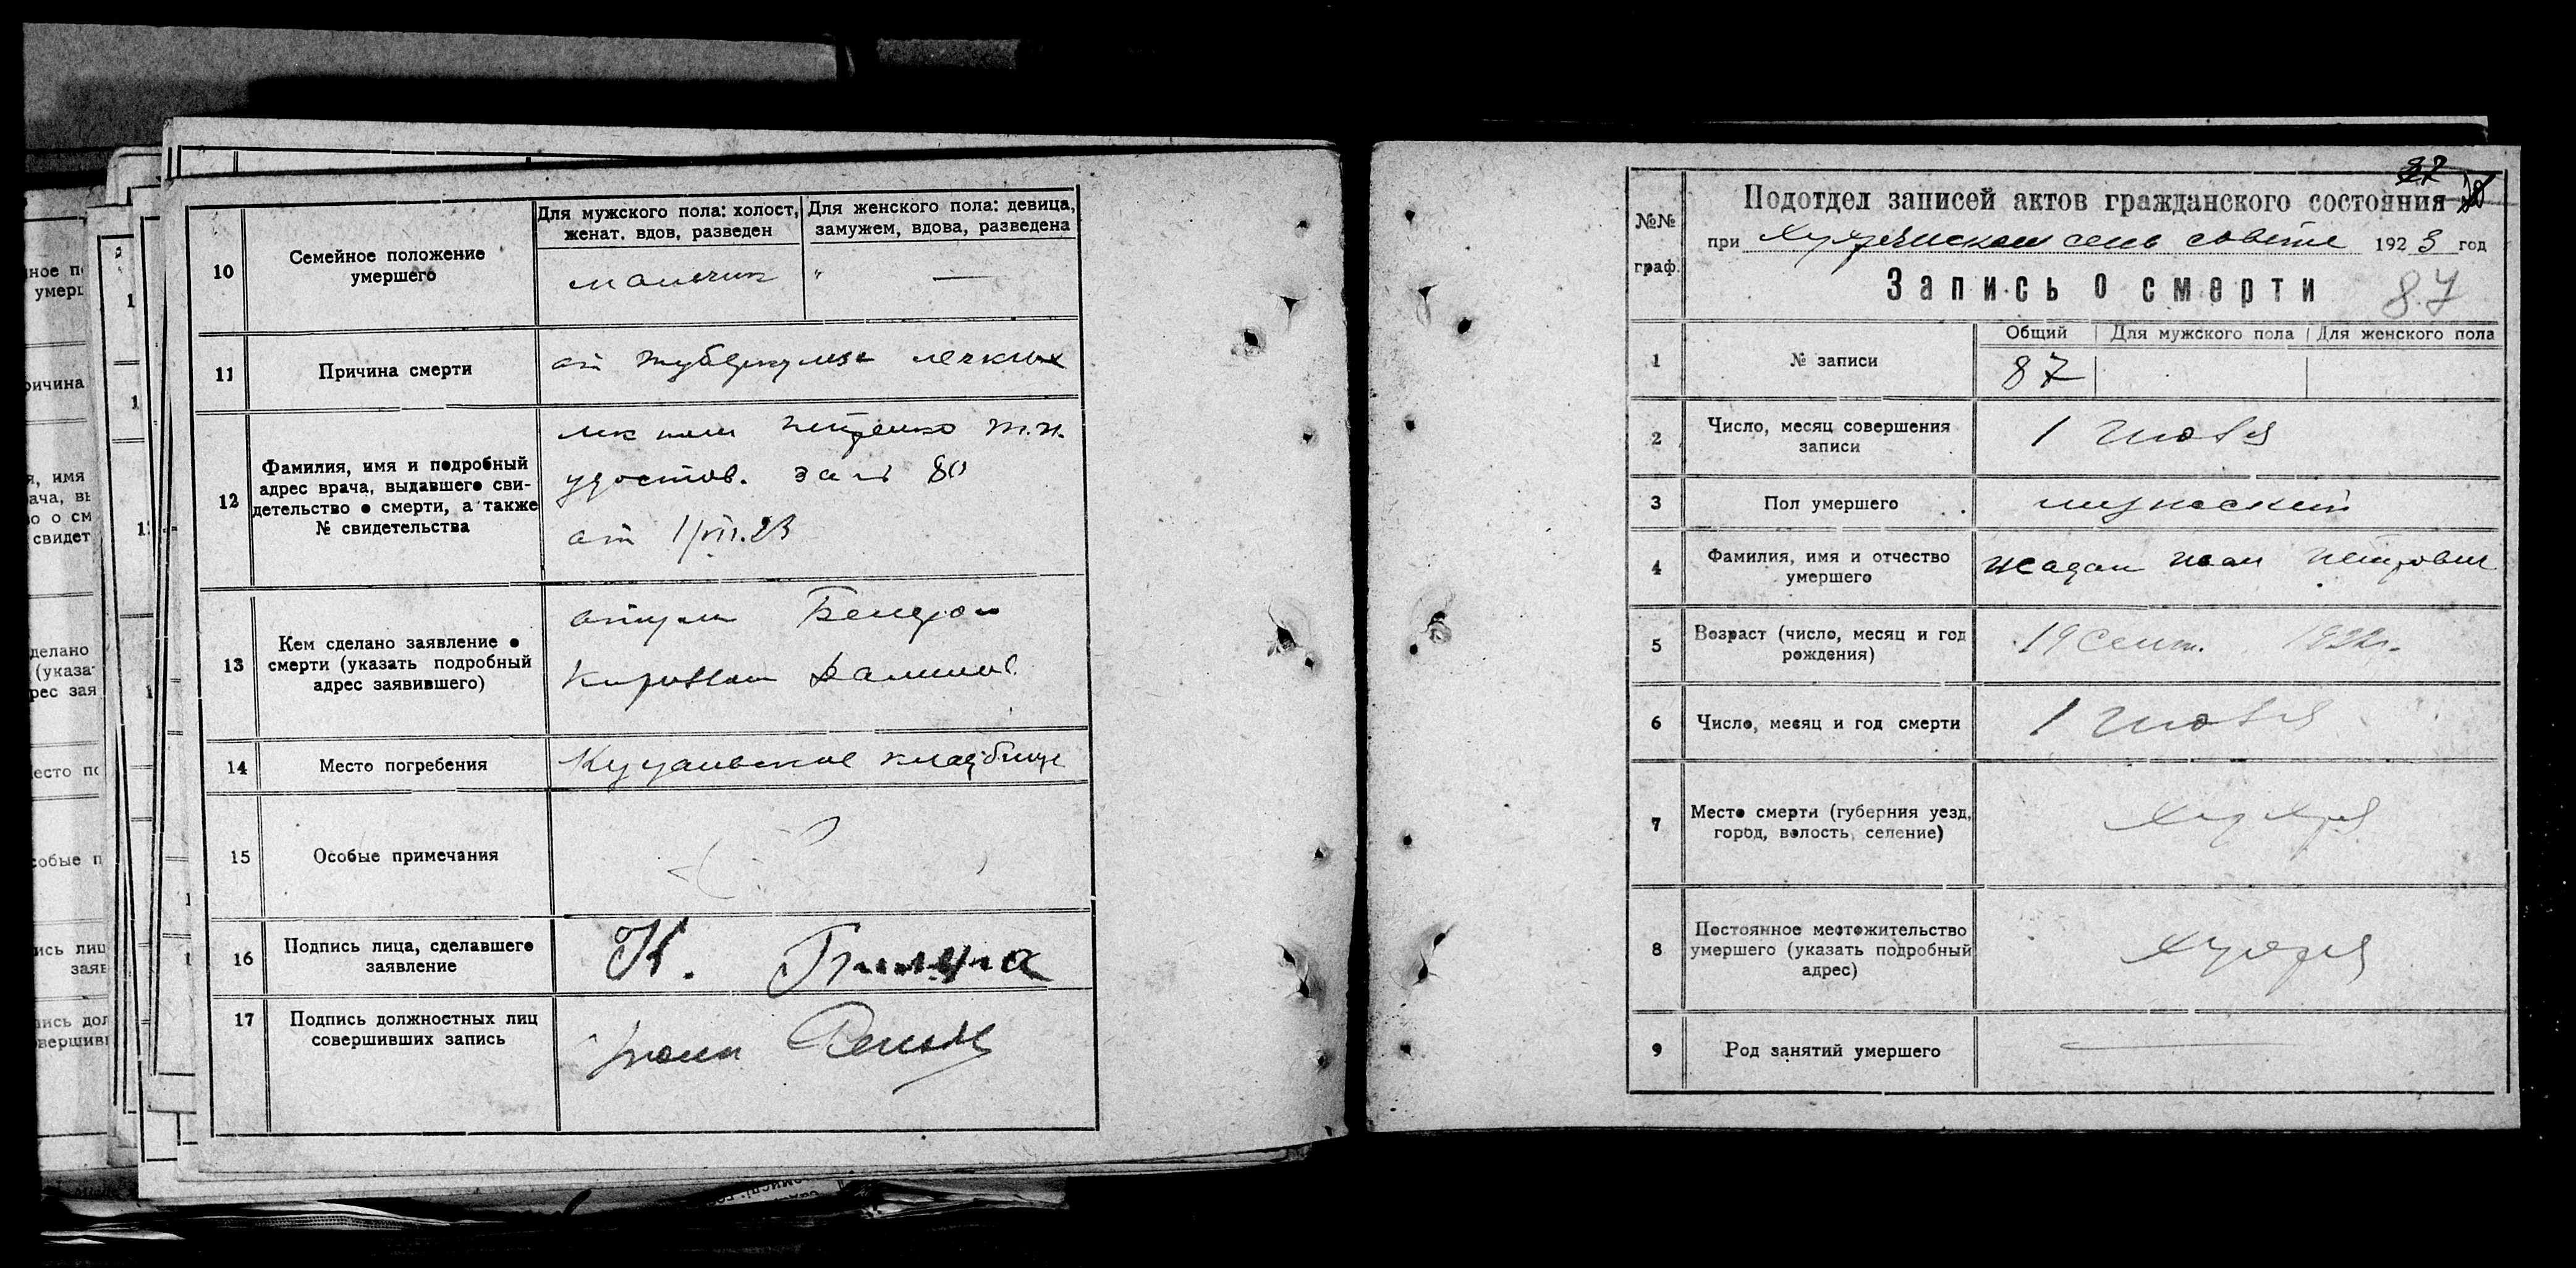 10
Семейное положение
умершего
Для мужского пола: холост,
женат. вдов, разведен
Для женского пола: девица,
замужем, вдова, разведена
мальчик
" —
11
Причина смерти
от туберкулеза легких
12
Фамилия, имя и подробный
адрес врача, выдавшего сви-
детельство о смерти, а также
№ свидетельства
Петренко
удостов. за № 80
от 1/VII.23
13
Кем сделано заявление о
смерти (указать подробный
адрес заявившего)
14
Место погребения
кладбище
15
Особые примечания
16
Подпись лица, сделавшего
заявление
К.
17
Подпись должностных лиц
совершивших запись
№№
граф.
37
Подотдел записей актов гражданского состояния
при сель совете 1923 год
Запись о смерти
87
1
№ записи
Общий
Для мужского пола
Для женского пола
87
2
Число, месяц совершения
записи
1 июля
3
Пол умершего
мужеский
4
Фамилия, имя и отчество
умершего
Жадан Иван Петрович
5
Возраст (число, месяц и год
рождения)
19 сент. 1922г.
6
Число, месяц и год смерти
1 июля
7
Место смерти (губерния уезд,
город, волость, селение)
8
Постоянное местожительство
умершего (указать подробный
адрес)
9
Род занятий умершего
—